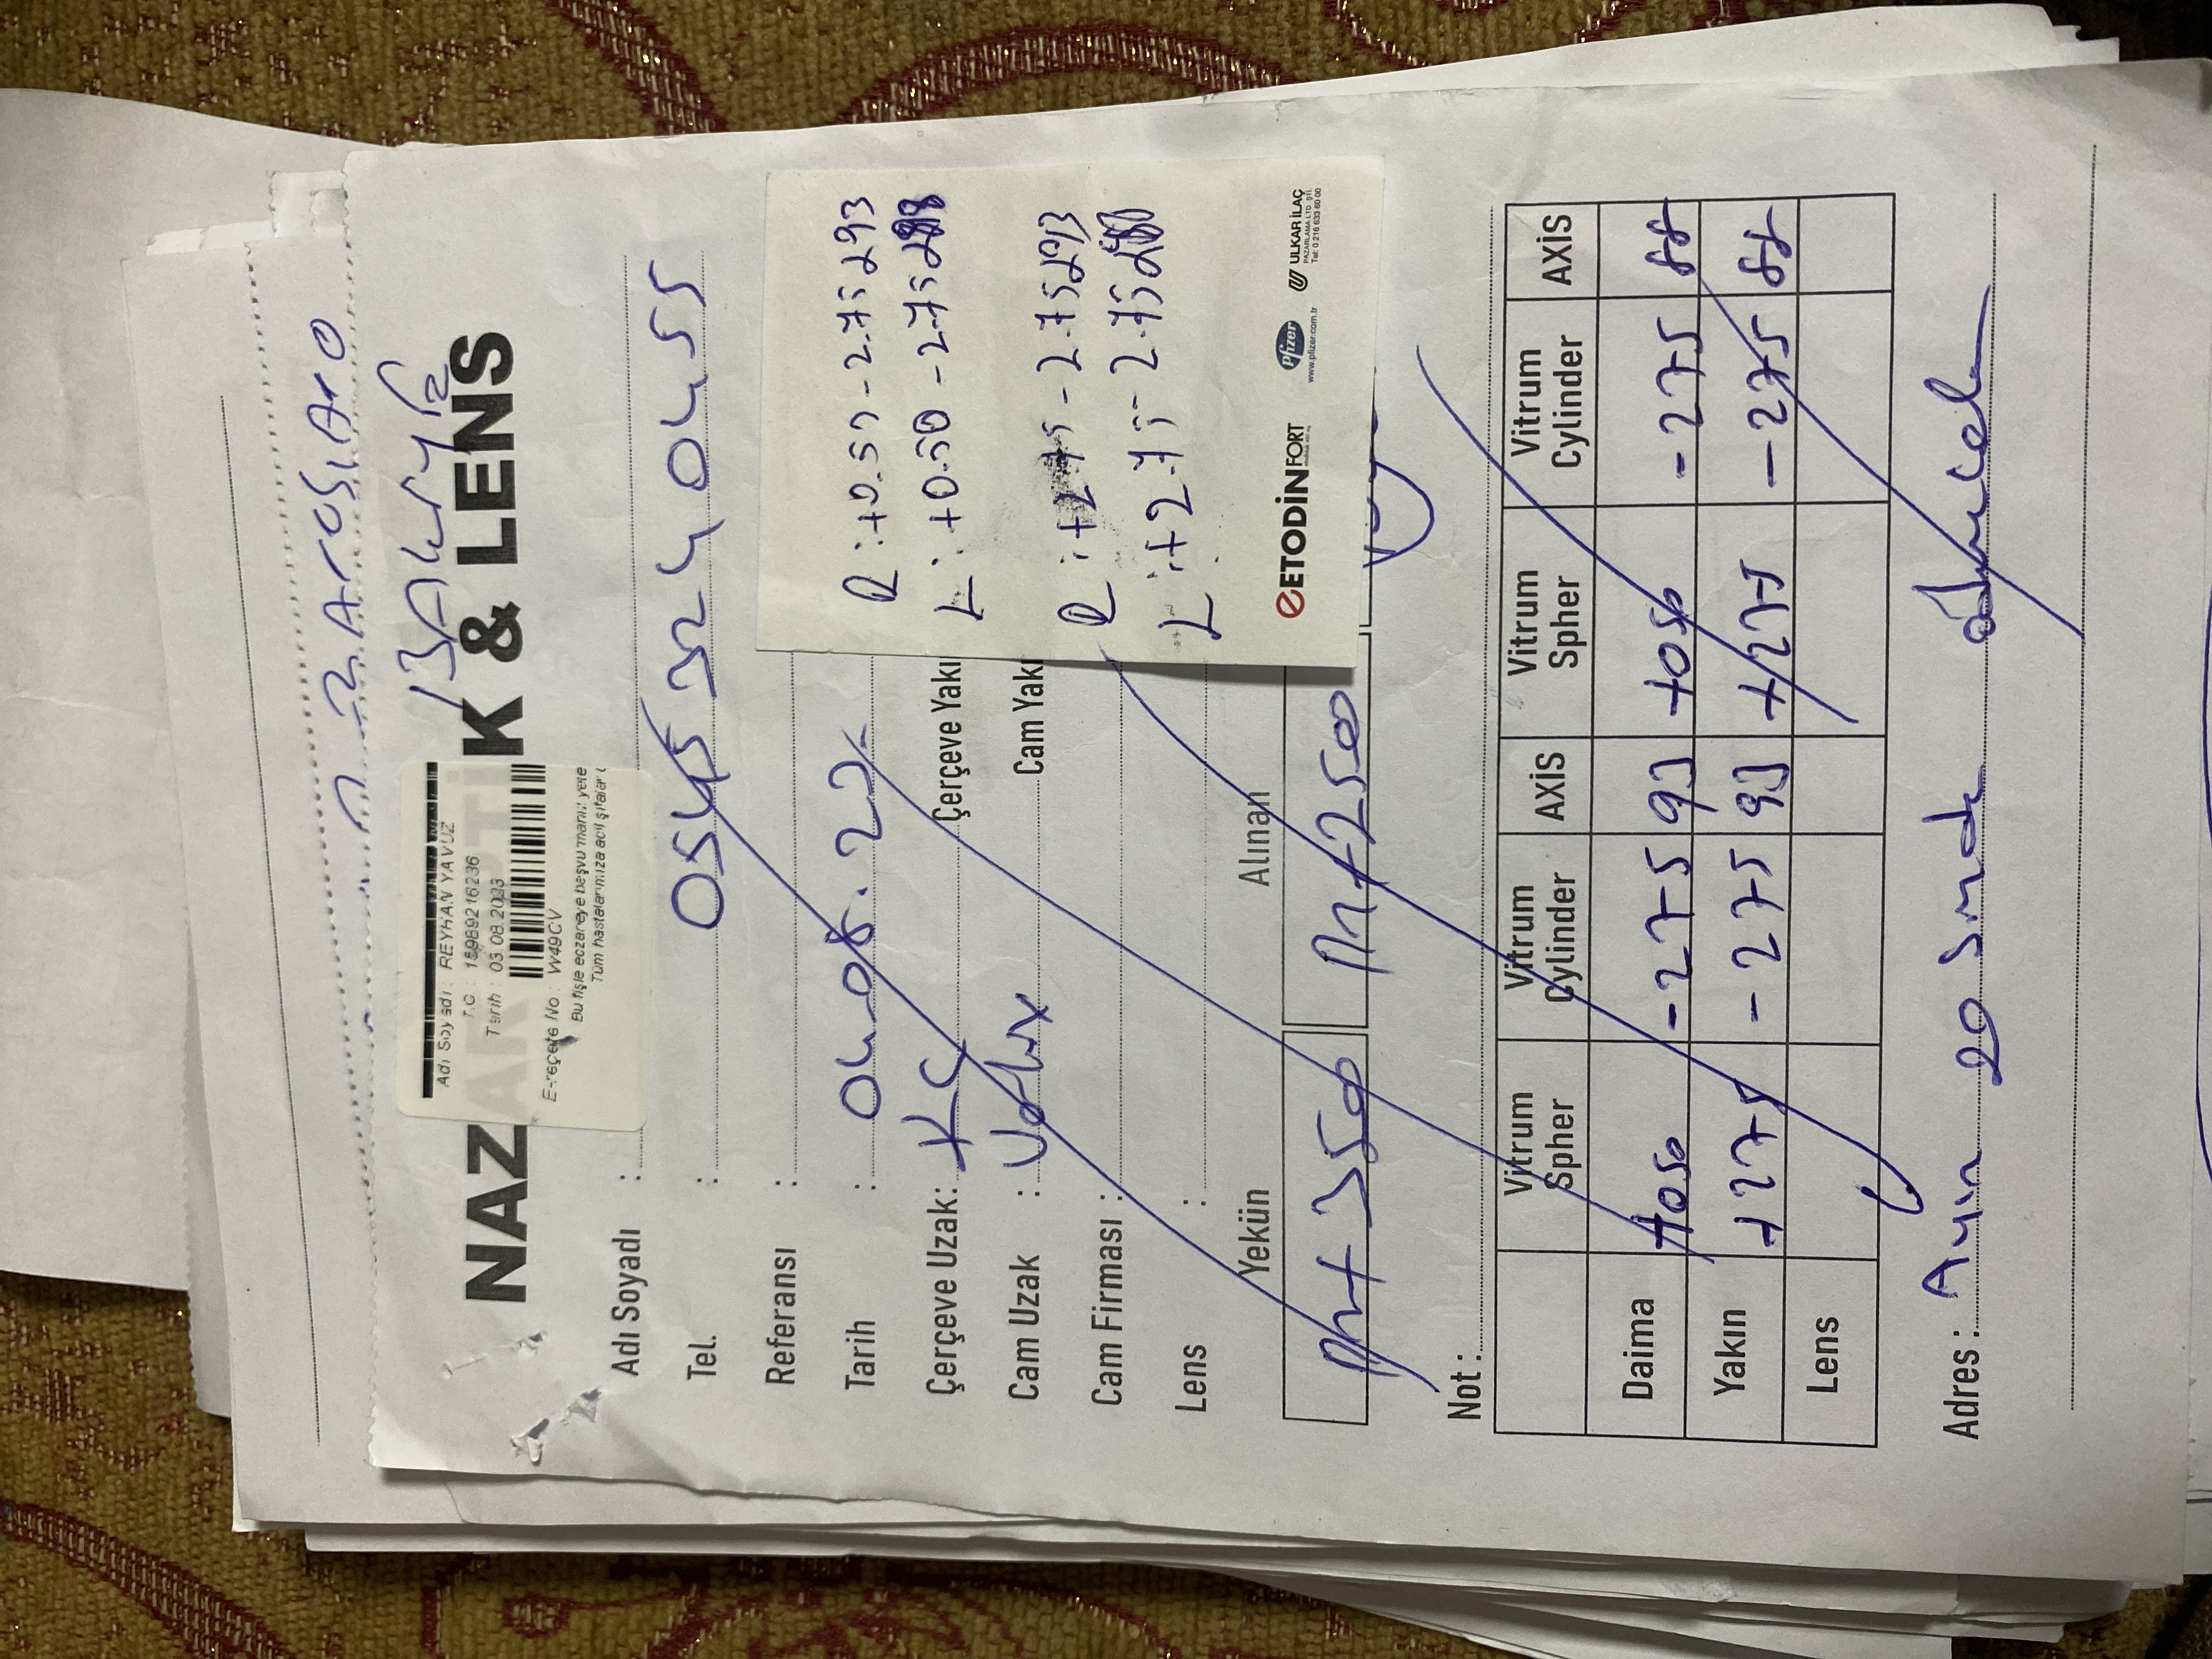 BAKİYE
Adı Soyadı : REYHAN YAVUZ
T.C : 15989216236
Tarih : 03.08.2023
E-reçete No : W49CV
Bu fişle eczaneye başvurmanız yete
Tüm hastalarımıza acil şifalar
NAZAR OPTİK & LENS
Adı Soyadı :
Tel. : 0545 324 0455
Referansı :
Tarih : 04.08.23
Çerçeve Uzak: KC Çerçeve Yakı
Cam Uzak : Cam Yakı
Cam Firması :
Lens :
R : +0.50 - 2.75 α 93
L : +0.50 - 2.75 α 88
R : +2.75 - 2.75 α 93
L : +2.75 - 2.75 α
eETODİN FORT
Pfizer
www.pfizer.com.tr
ULKAR İLAÇ
PAZARLAMA LTD. ŞTİ.
Tel: 0 216 633 60 00
Yekün Alınan
3500 2500
Not :
Vitrum Spher Vitrum Cylinder AXİS Vitrum Spher Vitrum Cylinder AXİS
Daima +050 -275 93 +050 -275 88
Yakın +275 -275 93 +275 -275 88
Lens
Adres : Ayın 20 sinde ödenecek